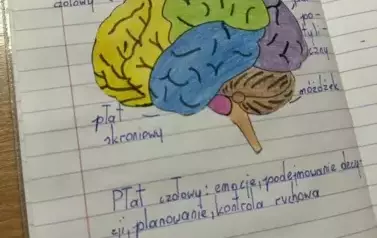 dołowy
po-
tyli-
czny
móżdżek
płat
skroniowy
Płat czołowy: emocje, podejmowanie decy-
zji, planowanie, kontrola ruchowa